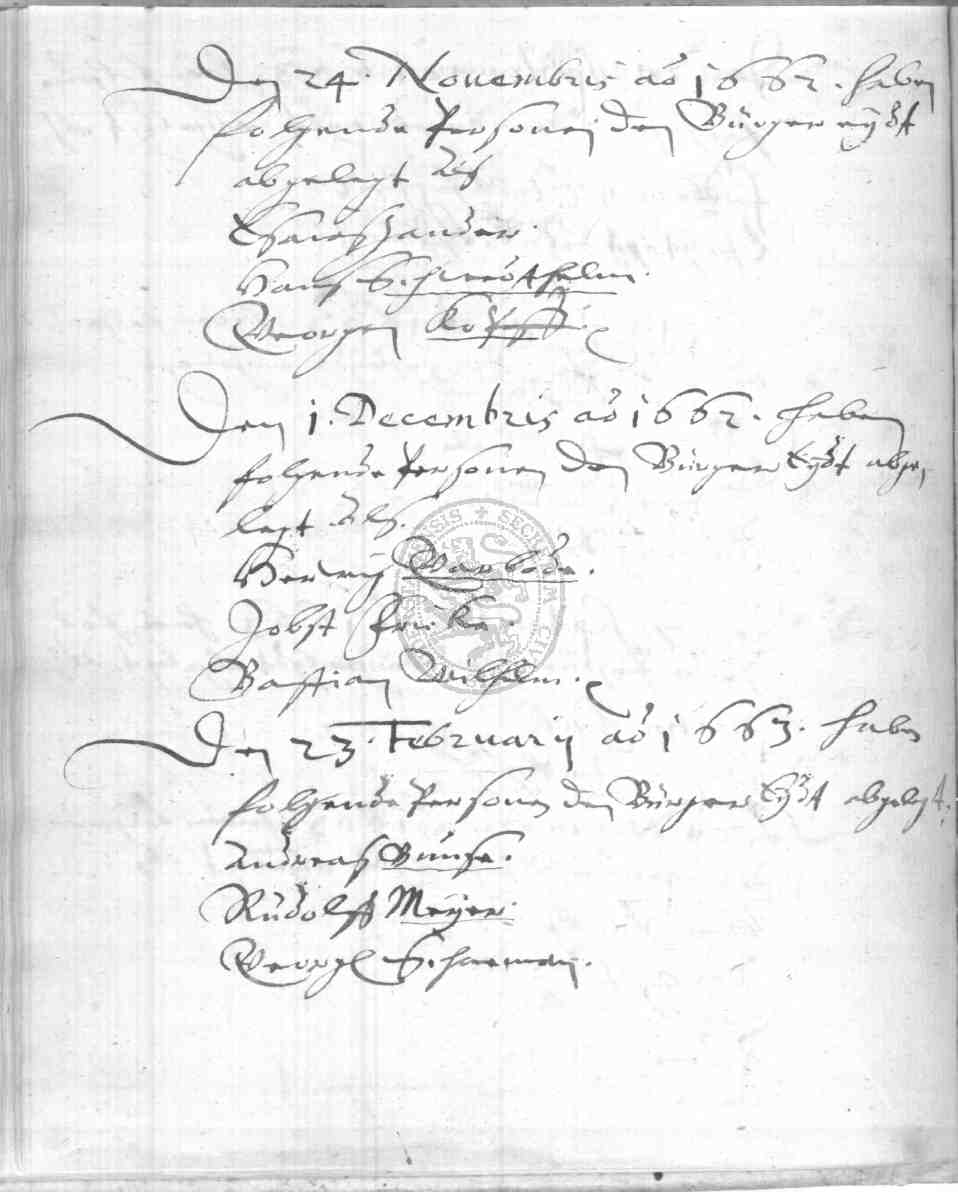 Den 24. Novembris aõ 1662. haben
folgende Personen den Bürger eydt
abgelegt alß
Hanß Schwerdthelm.
Georgen Kopff.
Den 1. Decembris aõ 1662. haben
folgende Personen den Bürger Eydt abge
legt alß.
Henrich
Jobst Fricke.
Bastian Wilhelm.
Den 23. February aõ 1663. haben
folgende Personen den Bürger Eydt abgelegt.
Andreas Bunse.
Rudolff Meyer.
Georg Scharman.
SECR CIVI